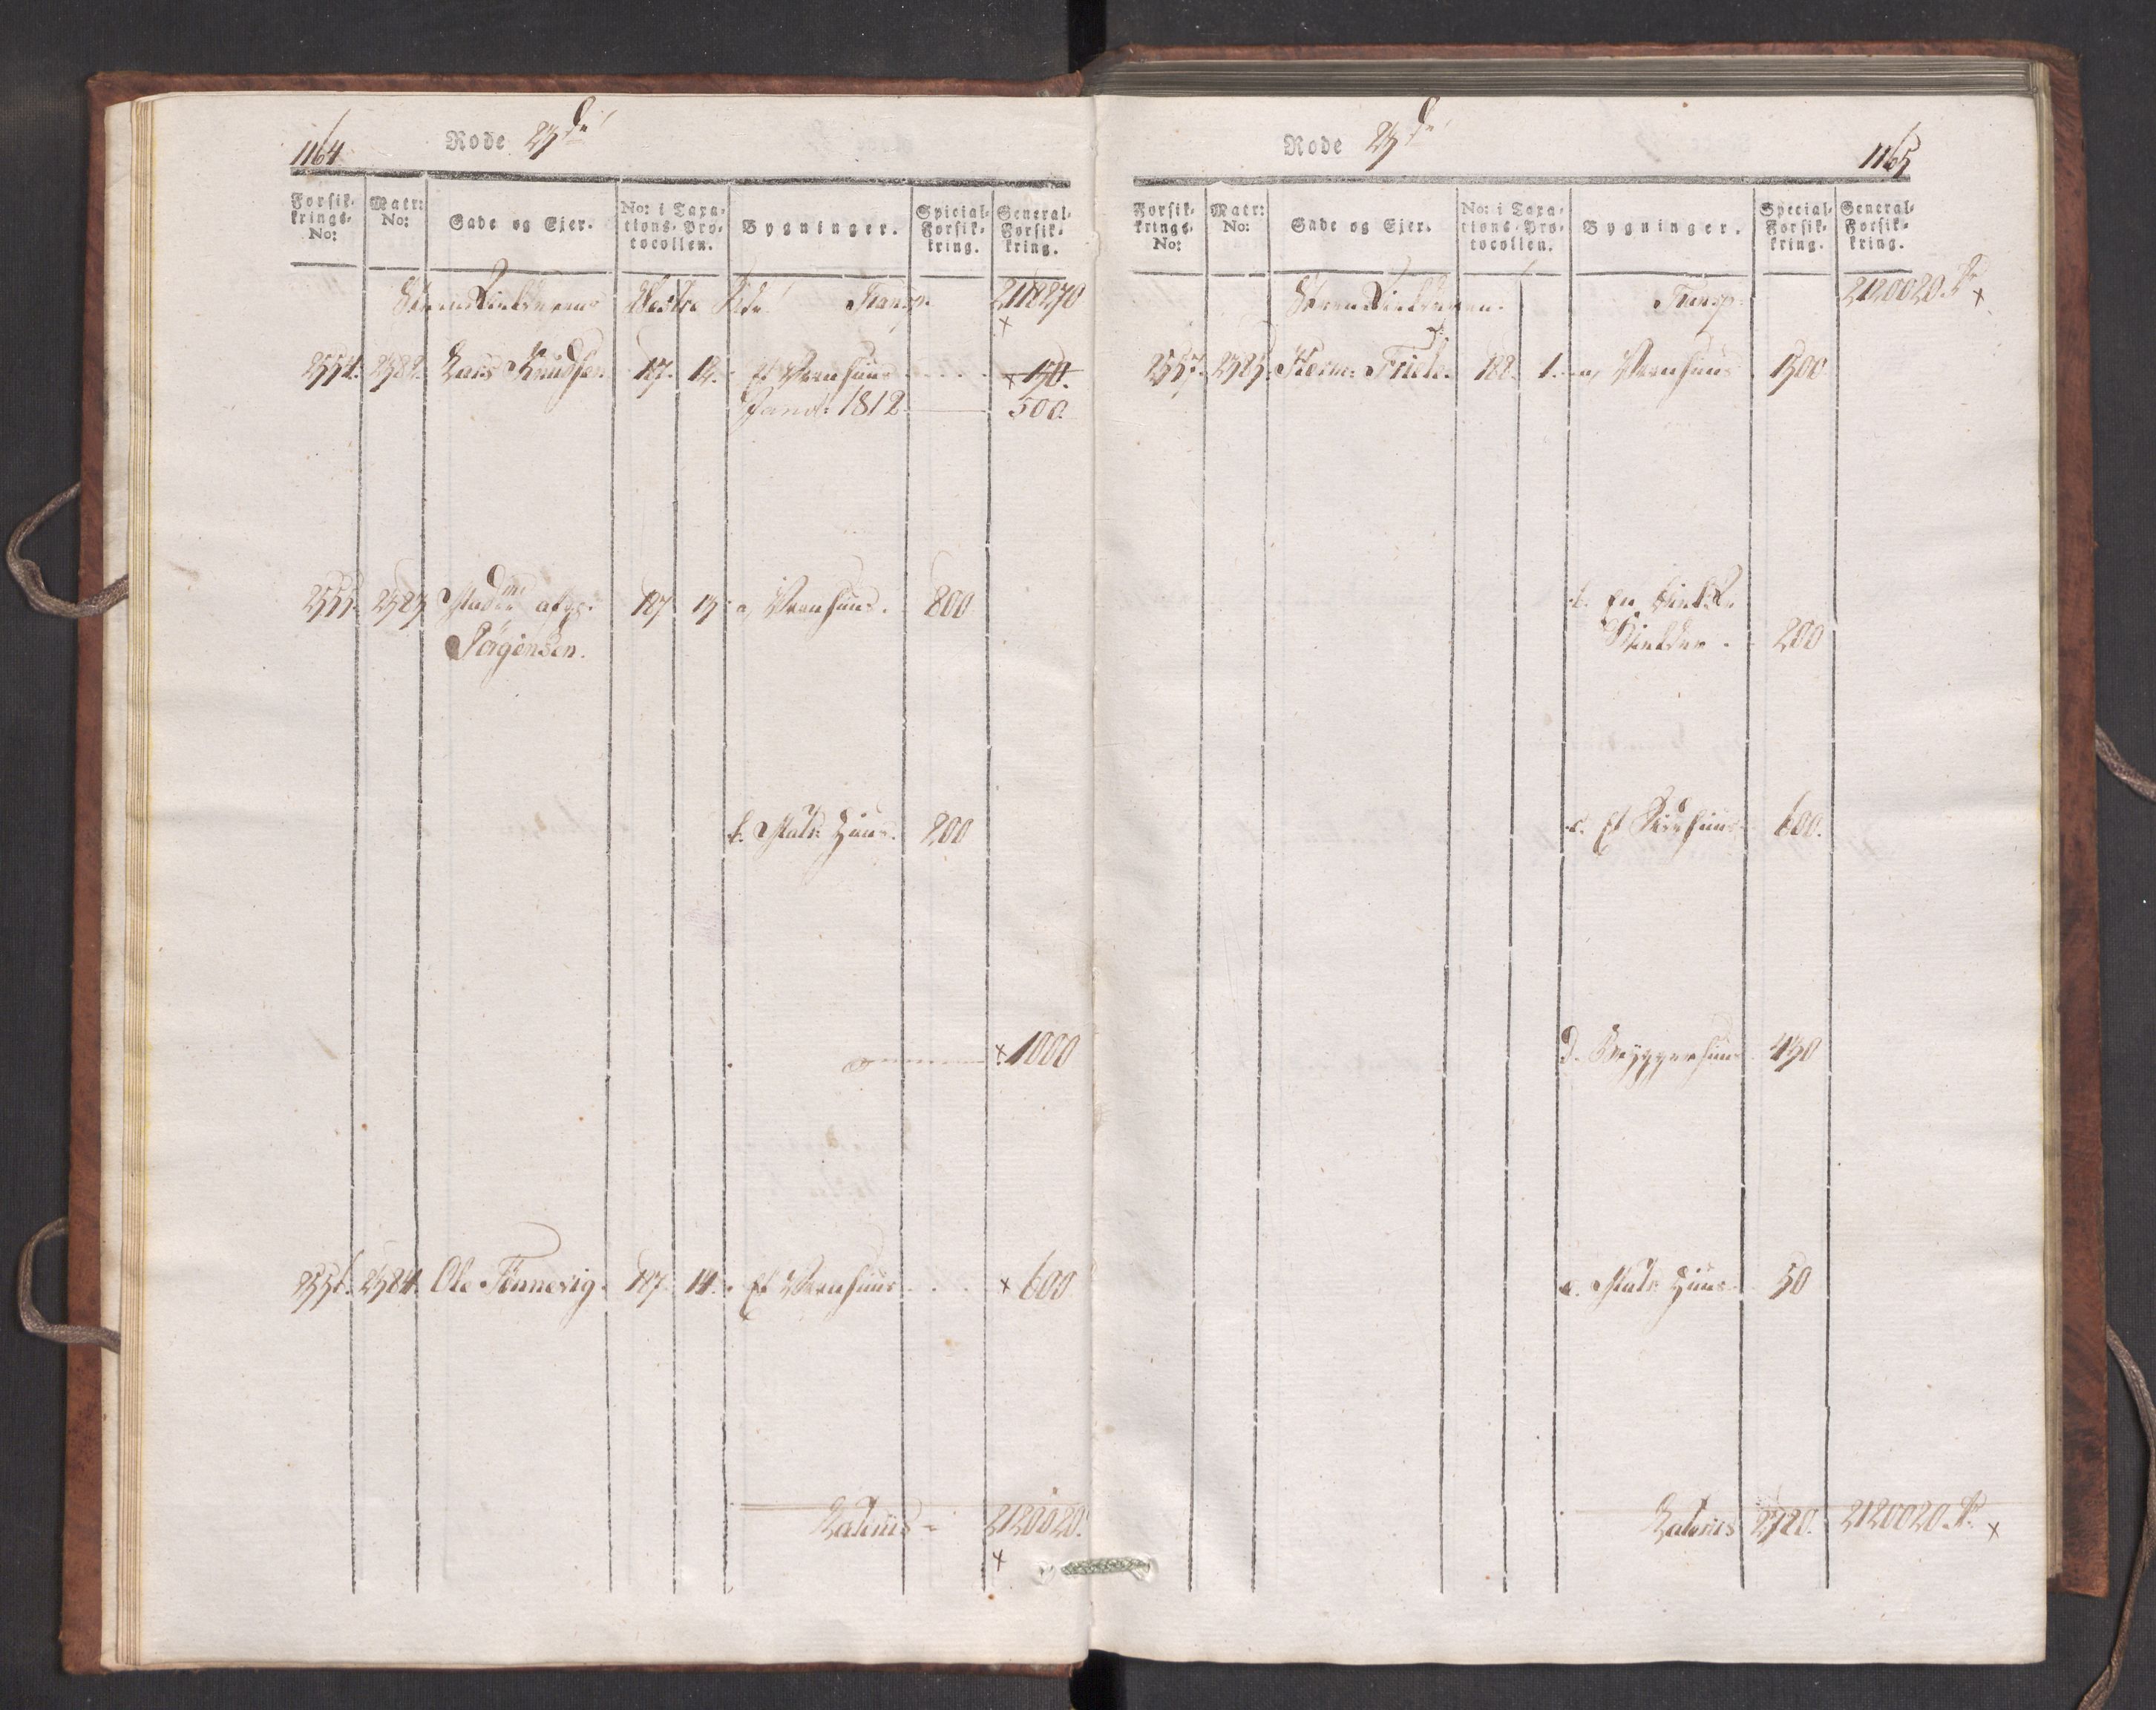 1164
Rode 23de
Forsik-
krings-
No:
Matr:
No:
Gade og Ejer.
No: i Taxa-
tions-Pro-
tocollen.
Bygninger.
Spicial-
Forsik-
kring.
General-
Forsik-
kring.
Transp. 2118270
2554. 2382. Lars Knudsen 187. 12. Et Vaanhuus 150.
Forand: 1812 500.
2555. 2383 Madme afg: 187 13 a, Vaanhuus. 800
Jörgensen.
b. Huus. 200
1000
2556. 2384. Ole Tennevig. 187. 14. Et Vaanhuus 600
Lateris 2120020.
1165
Rode 23de
Forsik-
krings-
No:
Matr:
No:
Gade og Ejer.
No: i Taxa-
tions-Pro-
tocollen.
Bygninger.
Special-
Forsik-
kring.
General-
Forsik-
kring.
Transp. 2120020
2557. 2385. Herm: Friele. 188. 1. a, Vaanhuus 1500
b. En
Kielder 200
c. Et huus 600.
d. Bryggerhuus 430
e. Huus 50
Lateris 2780. 2120020